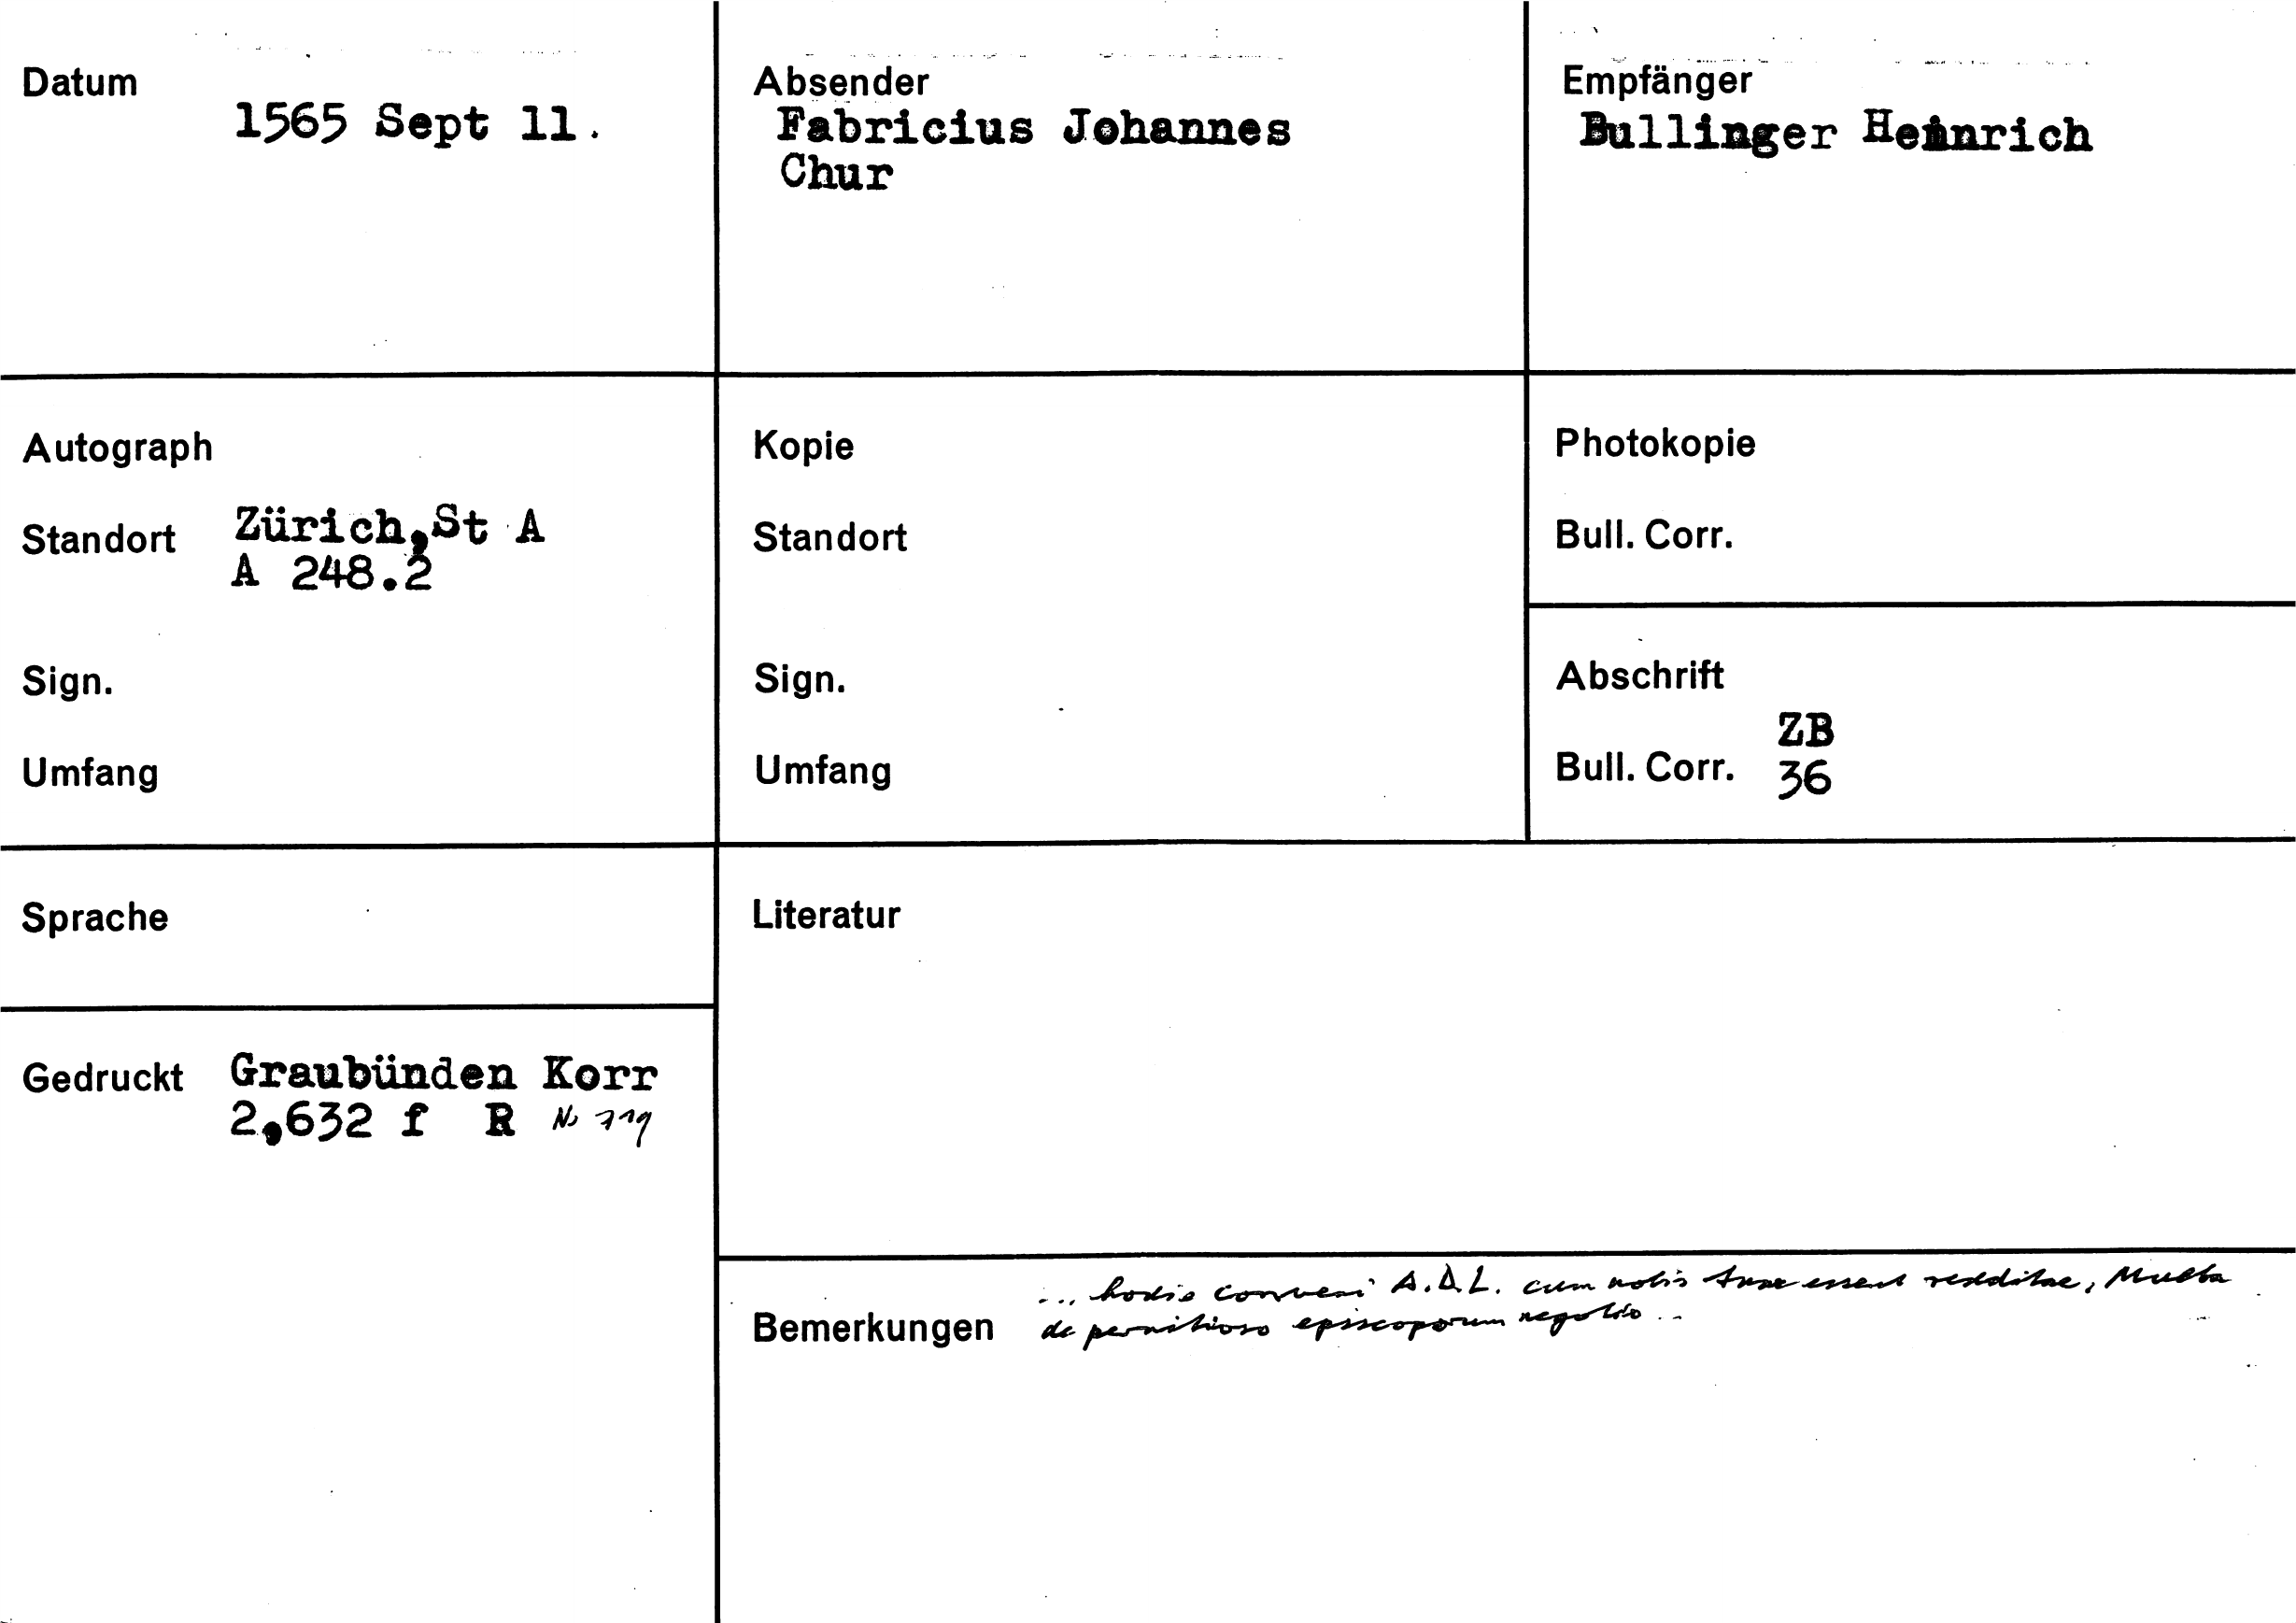 Datum
1565 Sept 11.
Absender
Fabricius Johannes
Chur
Empfänger
Bullinger Heinrich
Autograph
Standort Zürich,St A
A 248.2
Sign.
Umfang
Kopie
Standort
Sign.
Umfang
Photokopie
Bull. Corr.
Abschrift
ZB
Bull. Corr. 36
Sprache
Literatur
Gedruckt Graubünden Korr
2,632 f R No 719
Bemerkungen
... hodie conveni A.D.L. cum nobis tuae essent redditae, Multa
de pernitioso episcoporum negotio ..